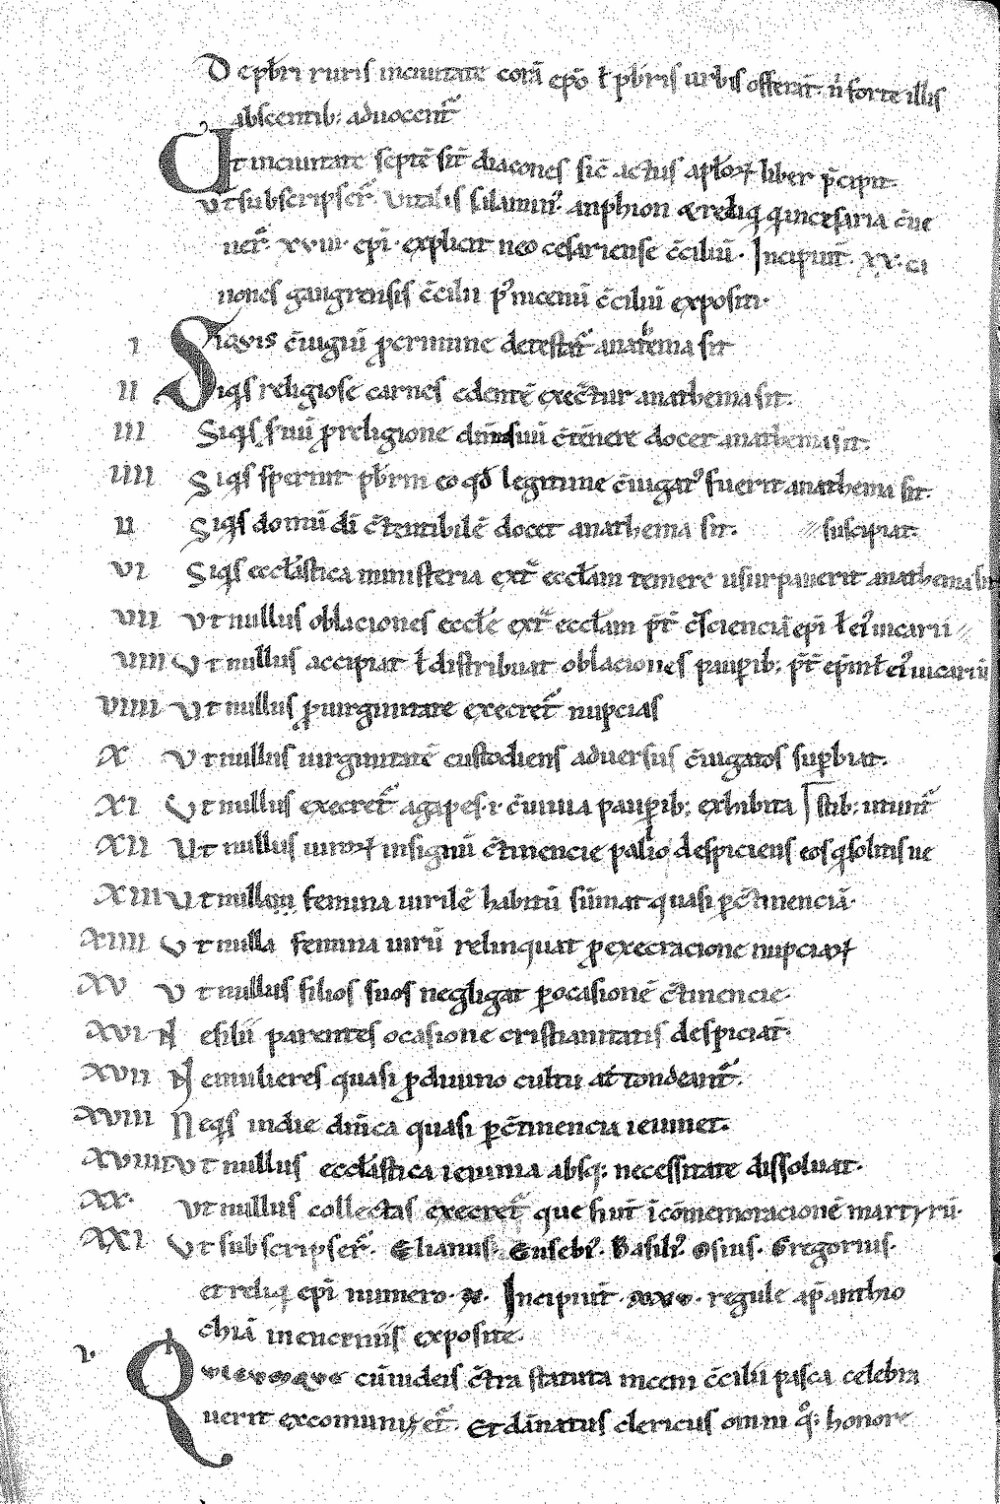 De pb̄ri ruris inciuitate corā ep̄o ł pb̄ris urbis offerāt. n̄ forte illis
absentib; aduocent̄
Ut inciuitate septē sīt diacones sic̄ actus apl̄oꝝ liber p̄cipit.
Ut subscripser̄. Vitalis amphion & reliq̄ qui incesaria c̄ue
ner̄. xviii. ep̄i. explicit neo cesariense c̄ciliū. Incipiūt. xx. ca
nones gangrensis c̄cilii p̄ nicenū c̄ciliū expositi.
i Siquis c̄iugiū ꝓcrimine detestat̄ anathema sit
ii Siq̄s religiose carnes edentē execr̄tur anathema sit.
iii Siq̄s suū ꝓreligione dn̄m suū c̄tēnere docet anathema sit.
iiii Siq̄s spernit pb̄rm eo qđ legitime c̄iugat᾽ fuerit anathema sit.
u Siq̄s domū dī c̄tentibilē docet anathema sit. // suscipiat.
vi Siq̄s eccl̄astica ministeria ext̄ eccl̄am temere usurpauerit anathema sit
vii Ut nullus oblaciones eccl̄e ext̄ eccl̄am p̄t c̄scienciā ep̄i ł ei᾽ uicarii //
viii Ut nullus accipiat ł distribuat oblaciones pauꝑib; p̄t ep̄m ł ei᾽ uicariū
viiii Ut nullus ꝓuirginitate execret̄ nupcias
x Ut nullus uirginitatē custodiens aduersus c̄iugatos suꝑbiat.
xi Ut nullus execret̄ agapes .i. c̄uiuia pauꝑib; exhibita
xii Ut nullus uiroꝝ insigniū c̄tinencie palio despiciens eos
xiii Ut nullam femina uirilē habitū sūmat quasi ꝑc̄tinenciā.
xiiii Ut nulla femina uirū relinquat ꝓexecracione nupciaꝝ
xv Ut nullus filios suos negligat ꝑocasionē c̄tinencie.
xvi Ne filii parentes ocasione cristianitatis despiciāt.
xvii Ne mulieres quasi ꝓdiuino cultu at̄tondeant̄.
xviii Neq̄s indie dn̄ica quasi ꝑc̄tinencia ieiunet.
xviiii Ut nullus eccl̄astica ieiunia absq; necessitate dissoluat.
xx. Ut nullus collectas execret̄ que fiūt ī cōmemoracionē martyrū.
xxi Ut subscripser̄. Elianus. Eusebi᾽. Basili᾽. Osius. Gregorius.
et reliq̄ ep̄i numero. x. Incipiūt. xxv. regule ap̄ anthio
chiā inenceniis exposite.
i. Quicumque cū iudeis c̄tra statuta niceni c̄cilii pasca celebra
uerit excomunicet̄. Et dānatus clericus omni q̊; honore